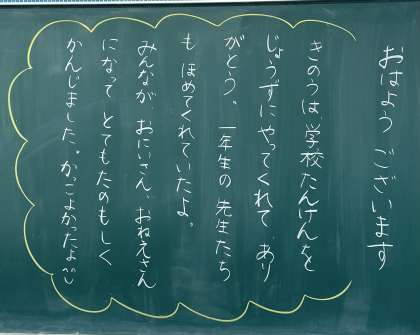 おはよう ございます
きのうは、学校たんけんを
じょうずにやってくれて、あり
がとう。一年生の先生たち
も ほめてくれていたよ。
みんなが、おにいさん、おねえさん
になって とてもたのもしく
かんじました。かっこよかったよ^^